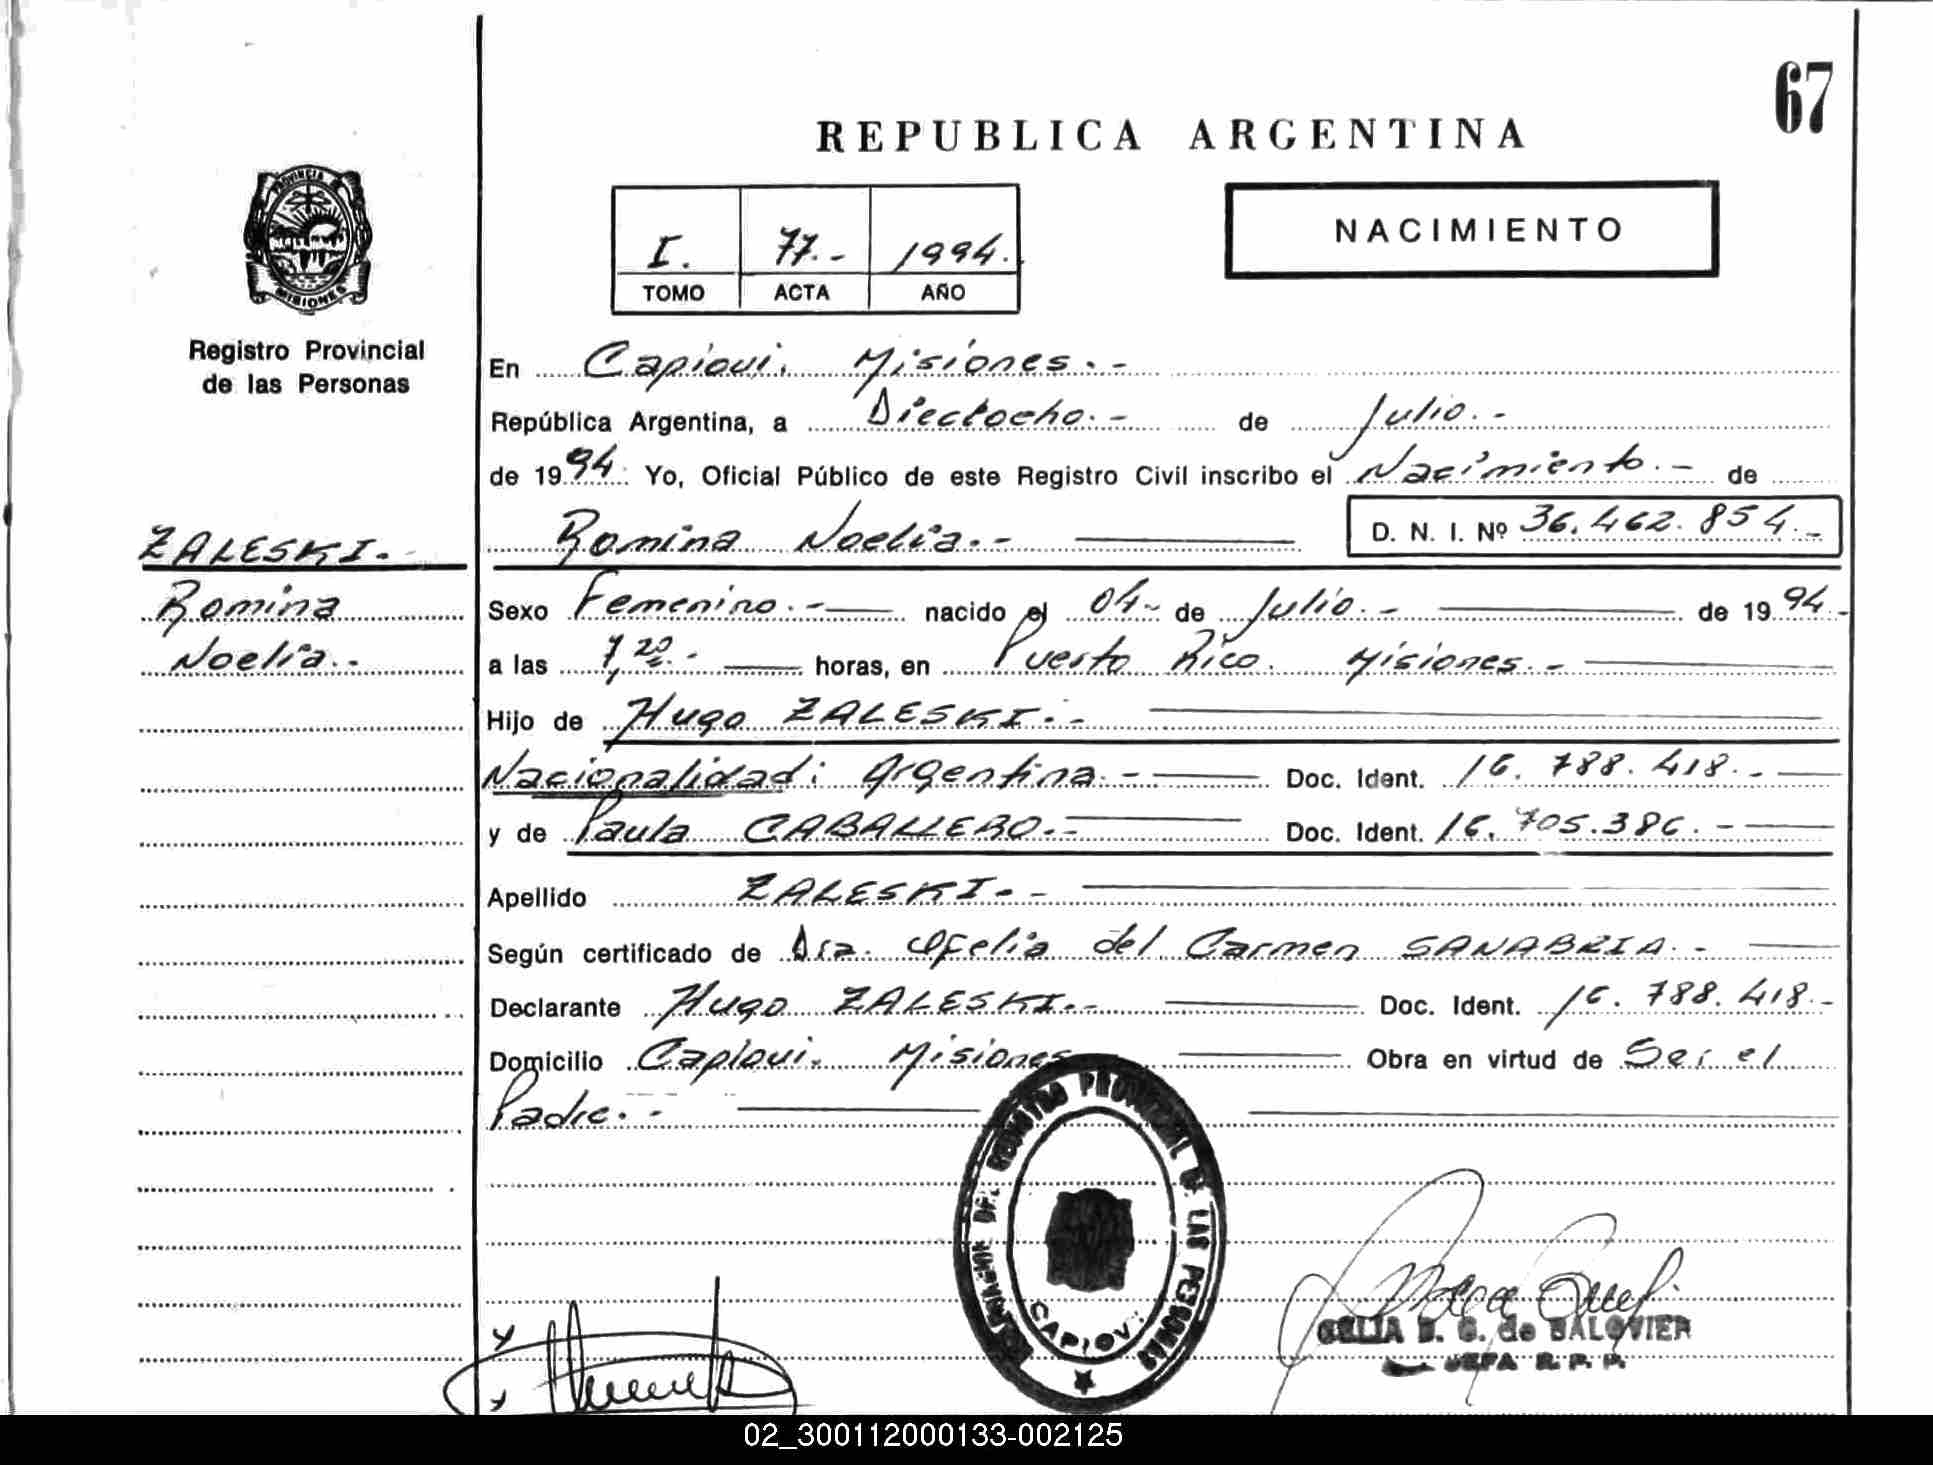 67
REPUBLICA ARGENTINA
PROVINCIA DE
MISIONES
Registro Provincial
de las Personas
I. 77.- 1994.
TOMO ACTA AÑO
NACIMIENTO
En Capiovi. Misiones.-
República Argentina, a Dieciocho.- de Julio.-
de 1994. Yo, Oficial Público de este Registro Civil inscribo el Nacimiento.- de
Romina Noelia.- D. N. I. Nº 36.462.854.-
ZALESKI.-
Romina
Noelia.-
Sexo Femenino.- nacido el 04- de Julio.- de 1994.-
a las 7,20.- horas, en Puerto Rico. Misiones.-
Hijo de Hugo ZALESKI.-
Nacionalidad: Argentina.- Doc. Ident. 16.788.418.-
y de Paula CABALLERO.- Doc. Ident. 16.705.386.-
Apellido ZALESKI.-
Según certificado de Dra. Ofelia del Carmen SANABRIA.-
Declarante Hugo ZALESKI.- Doc. Ident. 16.788.418.-
Domicilio Capiovi. Misiones Obra en virtud de Ser el
Padre.-
REGISTRO PROVINCIAL DE LAS PERSONAS
CAPIOVI
CELIA B. G. de BALOVIER
JEFA R. P. P.
02_300112000133-002125